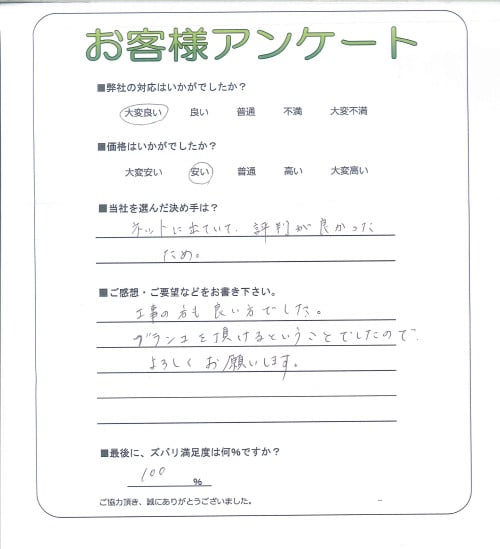 お客様アンケート
■弊社の対応はいかがでしたか？
大変良い 良い 普通 不満 大変不満
■価格はいかがでしたか？
大変安い 安い 普通 高い 大変高い
■当社を選んだ決め手は？
ネットに出ていて、評判が良かった
ため。
■ご感想・ご要望などをお書き下さい。
工事の方も良い方でした。
ブランコを頂けるということでしたので
よろしくお願いします。
■最後に、ズバリ満足度は何%ですか？
100 %
ご協力頂き、誠にありがとうございました。